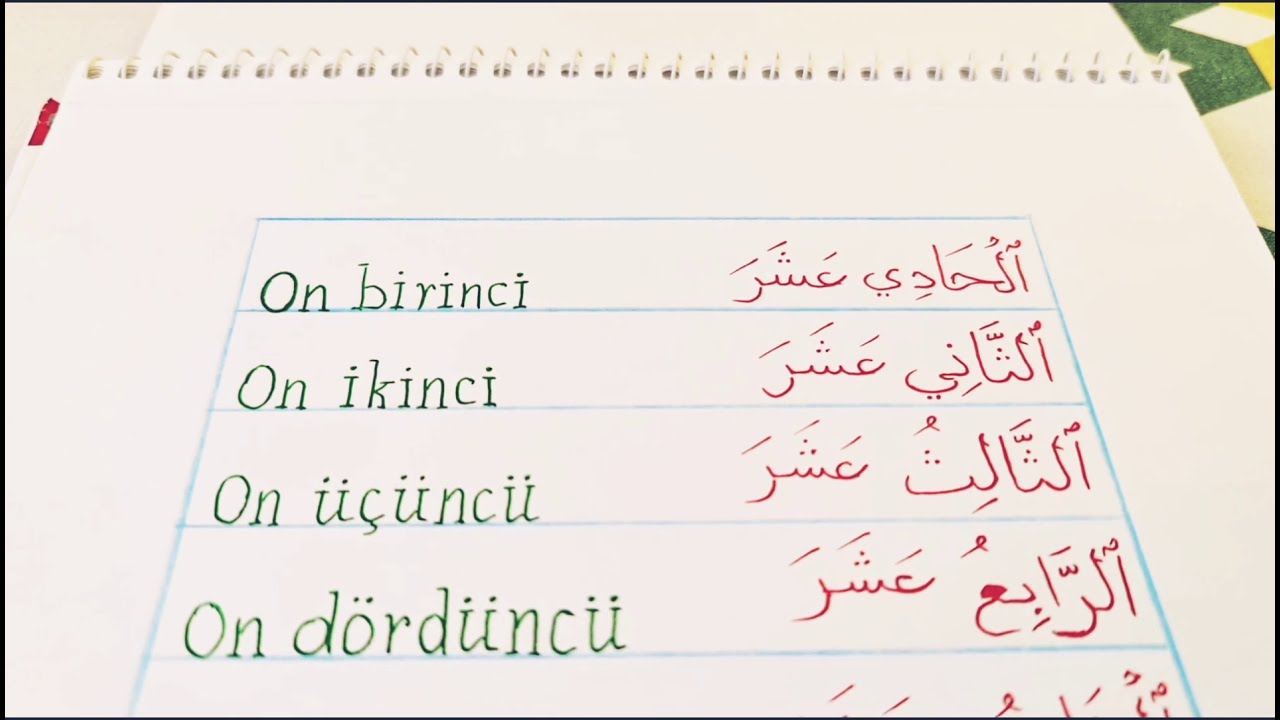 On birinci ٱلْحَادِي عَشَرَ
On ikinci ٱلثَّانِي عَشَرَ
On üçüncü ٱلثَّالِثُ عَشَرَ
On dördüncü ٱلرَّابِعُ عَشَرَ